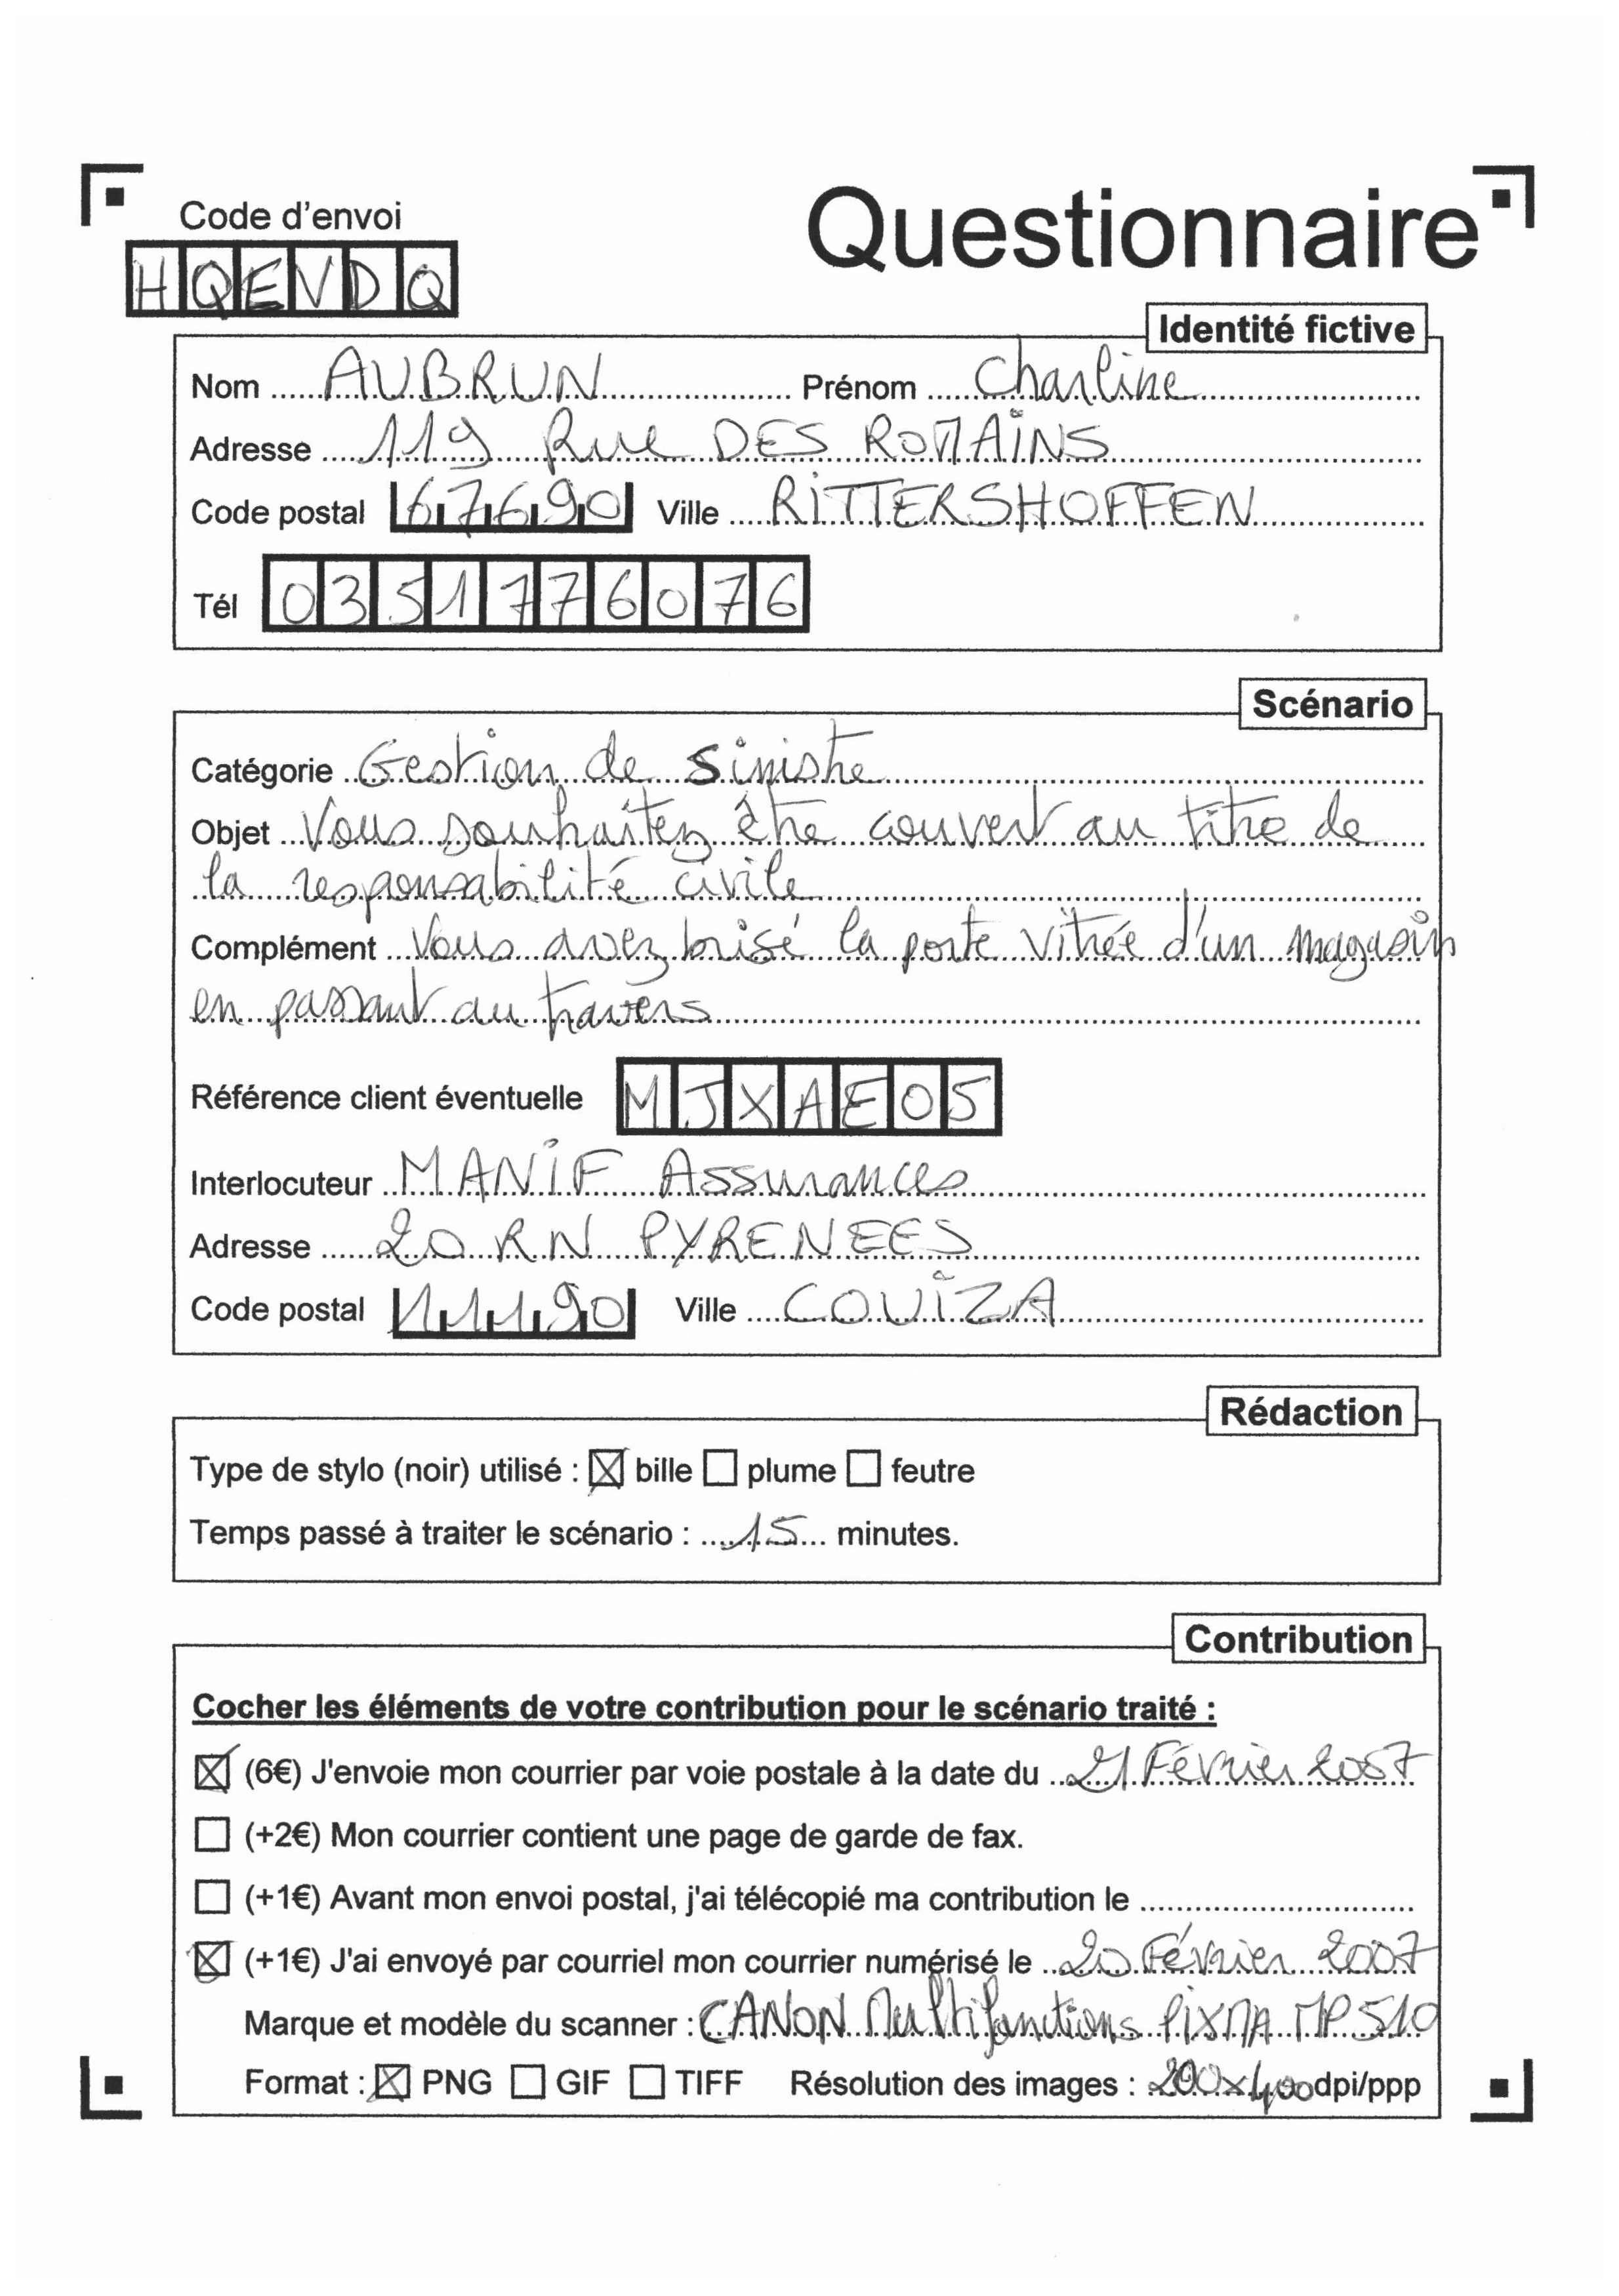 Code d'envoi
Questionnaire
HQEVDQ
Identité fictive
Nom AUBRUN Prénom Charline
Adresse 119 Rue DES ROMAINS
Code postal 67690 Ville RITTERSHOFFEN
Tél 0351776076
Scénario
Catégorie Gestion de sinistre
Objet Vous souhaitez être couvert au titre de
la responsabilité civile
Complément Vous avez brisé la porte vitrée d'un magasin
en passant au travers
Référence client éventuelle MJXAE05
Interlocuteur MANIF Assurances
Adresse 20 RN PYRENEES
Code postal 11190 Ville COUIZA
Rédaction
Type de stylo (noir) utilisé : ☒ bille ☐ plume ☐ feutre
Temps passé à traiter le scénario : 15 minutes.
Contribution
Cocher les éléments de votre contribution pour le scénario traité :
☒ (6€) J'envoie mon courrier par voie postale à la date du 21 Février 2007
☐ (+2€) Mon courrier contient une page de garde de fax.
☐ (+1€) Avant mon envoi postal, j'ai télécopié ma contribution le
☒ (+1€) J'ai envoyé par courriel mon courrier numérisé le 20 Février 2007
Marque et modèle du scanner : CANON Multifonctions PIXMA MP 510
Format : ☒ PNG ☐ GIF ☐ TIFF Résolution des images : 200x400 dpi/ppp